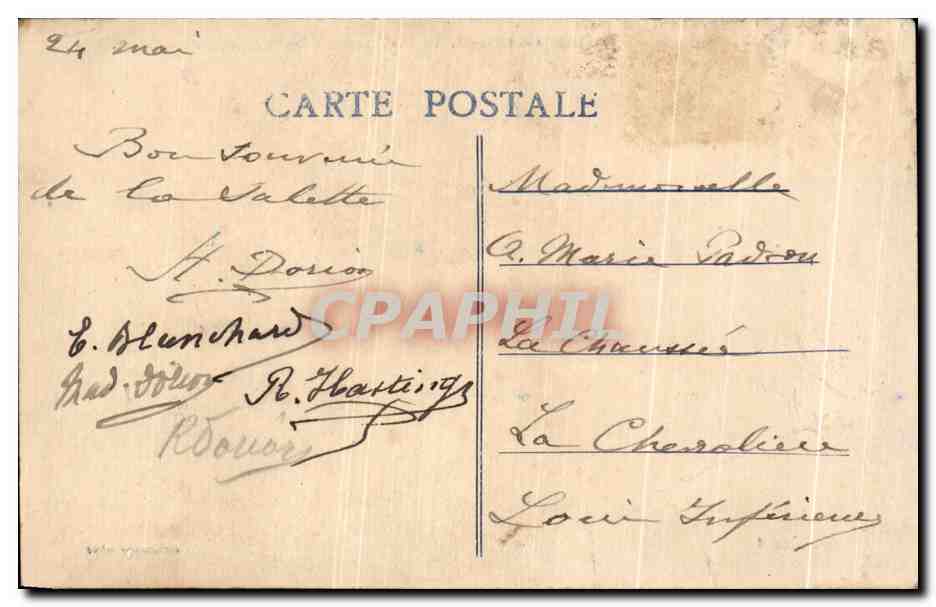 24 mai
CARTE POSTALE
Bon souvenir
de la Salette
H. Dorion
E. Blanchard
R. Hastings
Mademoiselle
Marie Padiou
La Chaussée
La Chevrolière
Loire Inférieure
CPAPHIL